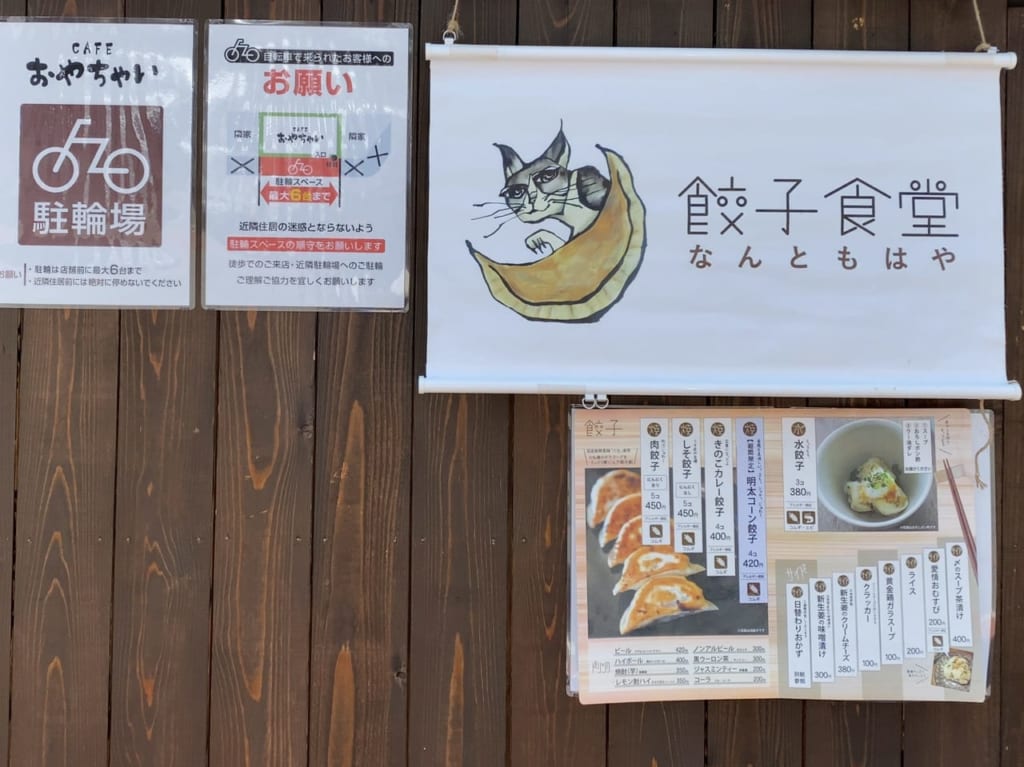 CAFE
おやちゃい
駐輪場
お願い
・駐輪は店舗前に最大6台まで
・近隣住居前には絶対に停めないでください
自転車で来られたお客様への
お願い
隣家
CAFE
おやちゃい
隣家
入口
駐輪スペース
最大6台まで
近隣住居の迷惑とならないよう
駐輪スペースの順守をお願いします
徒歩でのご来店・近隣駐輪場へのご駐輪
ご理解ご協力を宜しくお願いします
餃子食堂
なんともはや
餃子
肉餃子
にんにく
あり
5コ
450円
コムギ
しそ餃子
にんにく
なし
5コ
450円
コムギ
きのこカレー餃子
4コ
400円
コムギ
【期間限定】明太コーン餃子
4コ
420円
コムギ
水餃子
3コ
380円
コムギ・エビ
サイド
日替わりおかず
新生姜の味噌漬け
300円
新生姜のクリームチーズ
380円
クラッカー
100円
黄金鶏ガラスープ
100円
ライス
200円
愛情おむすび
200円
〆のスープ茶漬け
400円
ビール 420円
ハイボール 400円
焼酎(芋) 350円
レモン割ハイ 350円
ノンアルビール 300円
黒ウーロン茶 300円
ジャスミンティー 200円
コーラ 200円